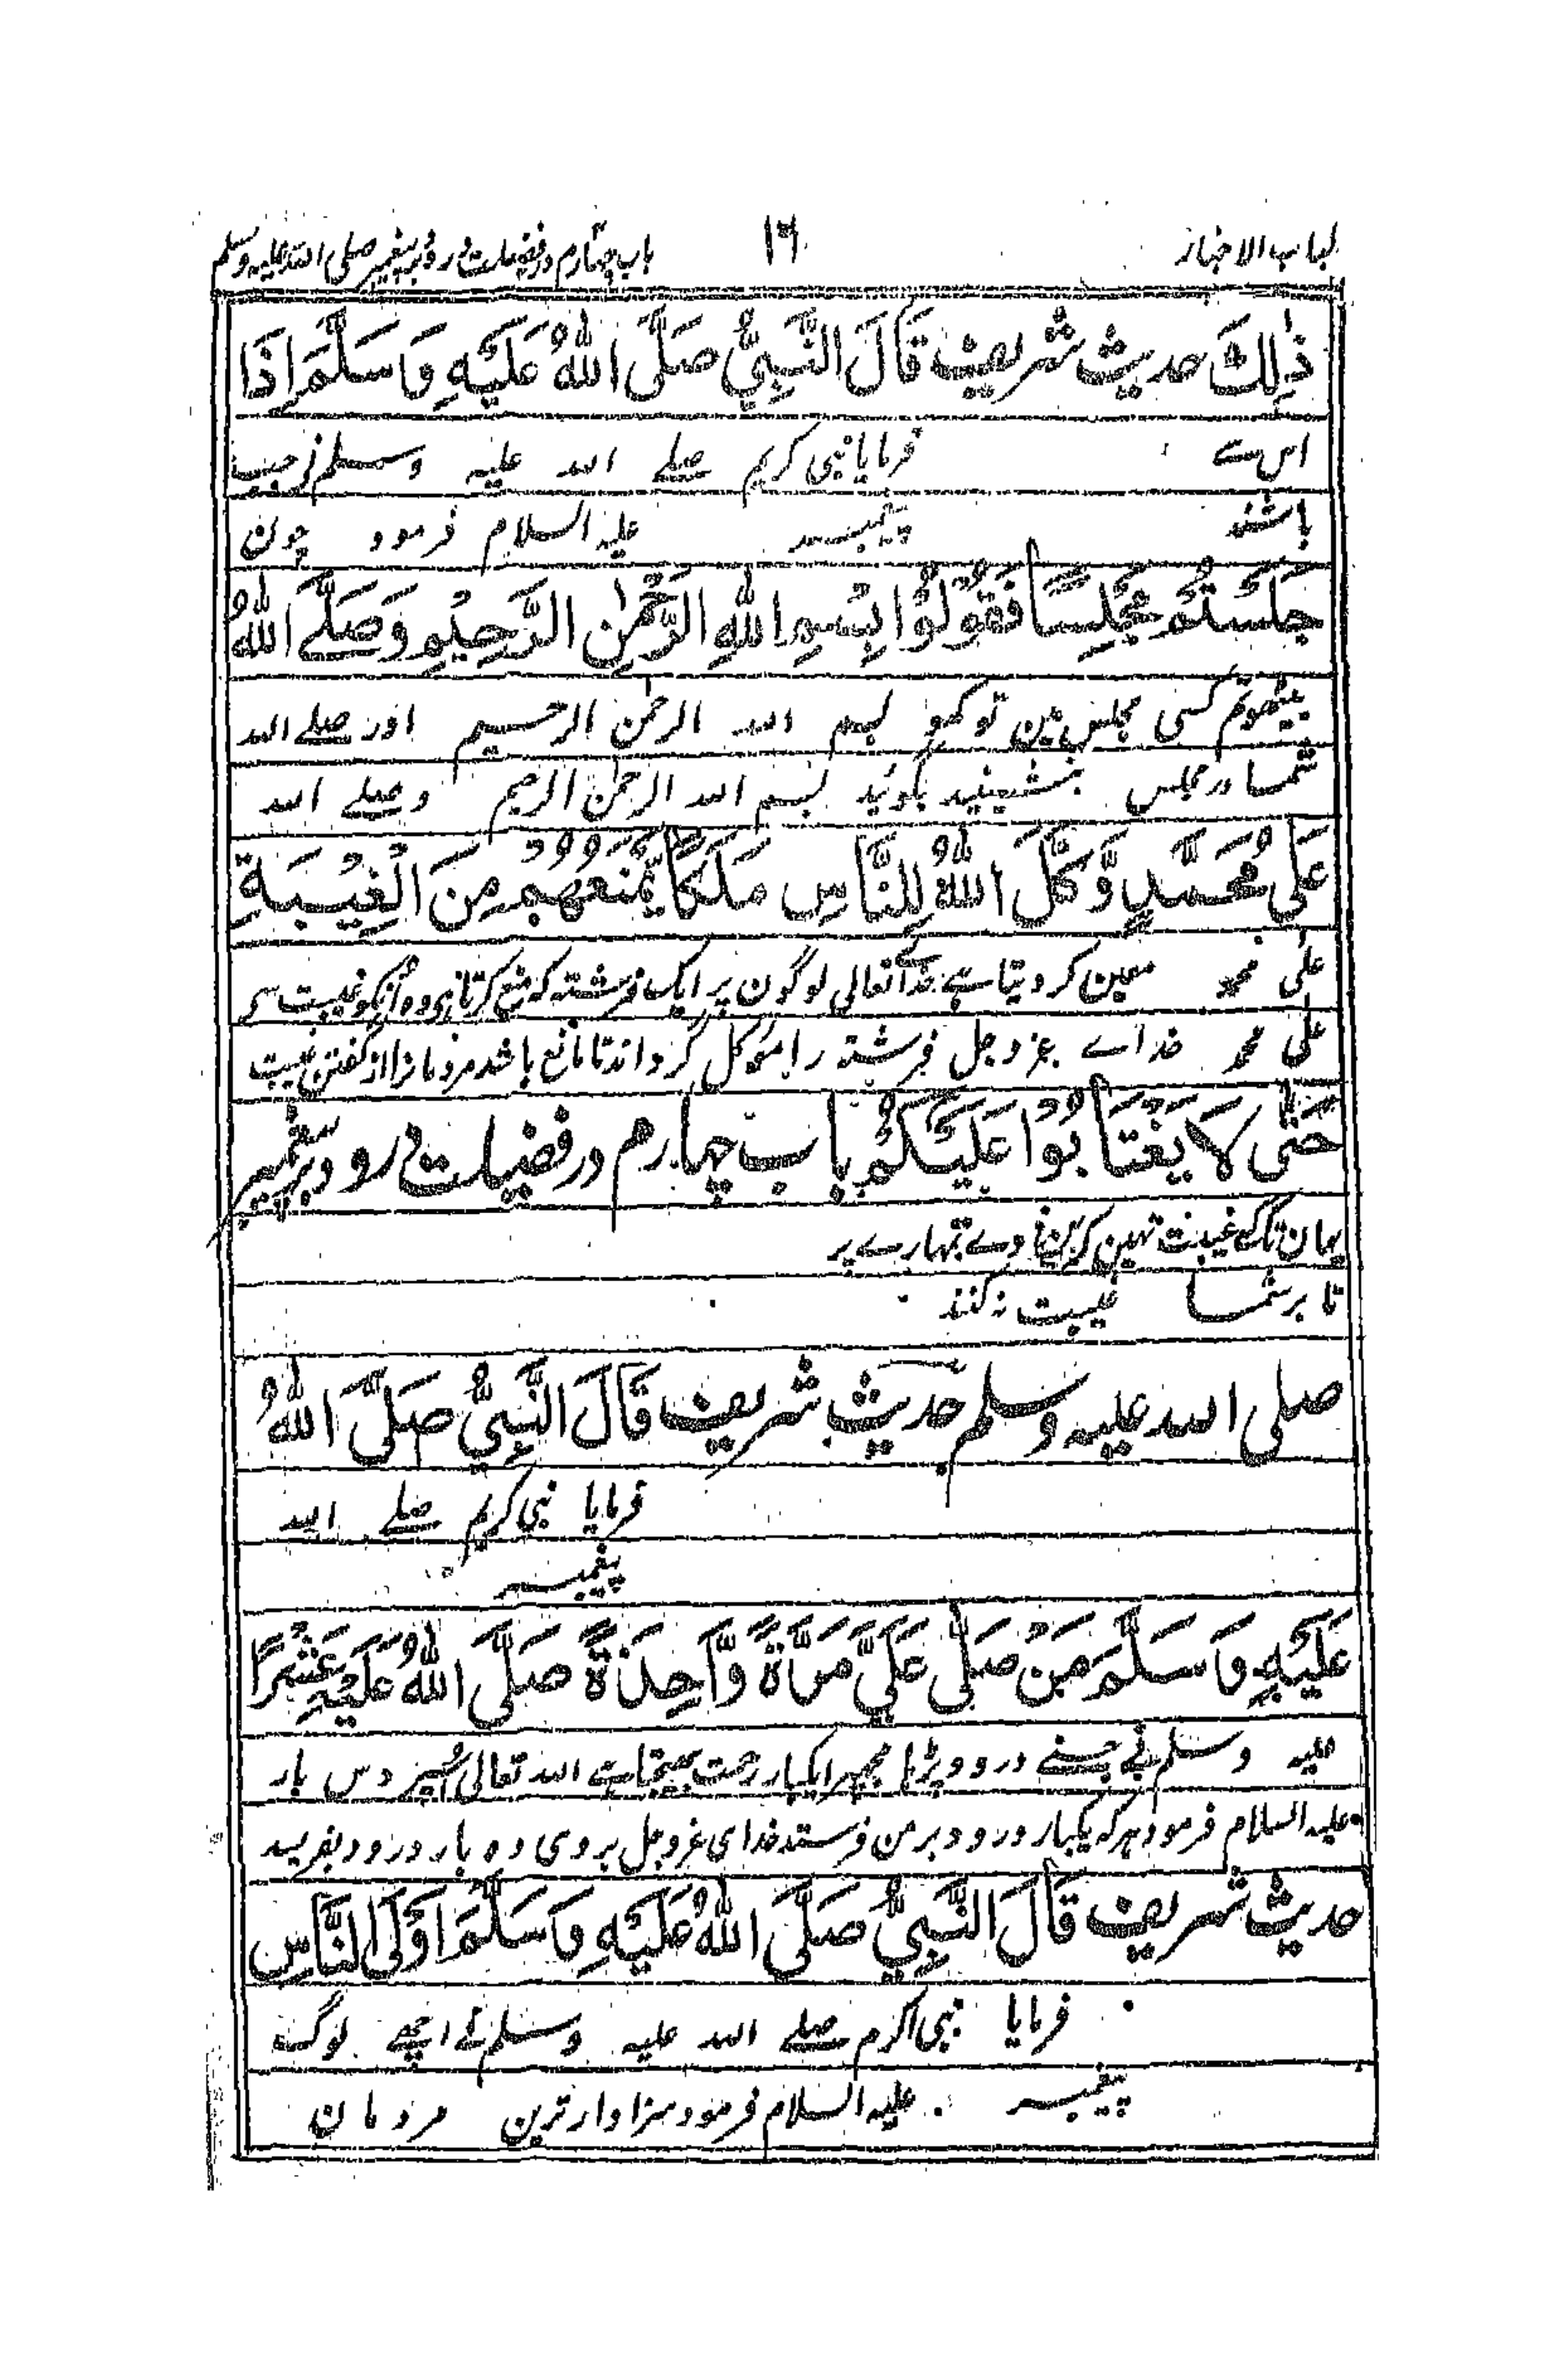 لباب الاخبار ۱۶ باب چہارم در فضیلت درود بر پیغمبر صلی اللہ علیہ وسلم
ذٰلِكَ حدیث شریف قَالَ النَّبِيُّ صَلَّى اللّٰهُ عَلَيْهِ وَسَلَّمَ اِذَا
اس سے فرمایا نبی کریم صلے اللہ علیہ وسلم نے جب
باشند پیغمبر علیہ السلام فرمود چون
جَلَسْتُمْ مَجْلِسًا فَقُوْلُوْا بِسْمِ اللّٰهِ الرَّحْمٰنِ الرَّحِيْمِ وَصَلَّے اللّٰهُ
بیٹھو تم کسی مجلس مین تو کہو بسم اللہ الرحمن الرحیم اور صلے اللہ
شما در مجلس بنشینید بگوئید بسم اللہ الرحمن الرحیم وصلے اللہ
عَلٰى مُحَمَّدٍ وَّكَّلَ اللّٰهُ لِلنَّاسِ مَلَكًا يَّمْنَعُهُمْ مِنَ الْغِيْبَةِ
علی محمد معین کر دیتا ہے خدا تعالی لوگون پر ایک فرشتہ کہ منع کرتا ہی وہ اُنکو غیبت سے
علی محمد خداے عزوجل فرشتہ را مؤکل گرداند تا مانع باشد مردمانرا از گفتن غیبت
حَتّٰى لَا يَغْتَابُوْا عَلَيْكُمْ باب چہارم در فضیلت درود بر پیغمبر
یہان تک کہ غیبت نہین کرین وے تمہارے پر
تا بر شما غیبت نہ کنند
صلی اللہ علیہ وسلم حدیث شریف قَالَ النَّبِيُّ صَلَّى اللّٰهُ
فرمایا نبی کریم صلے اللہ
پیغمبر
عَلَيْهِ وَسَلَّمَ مَنْ صَلّٰى عَلَيَّ مَرَّةً وَّاحِدَةً صَلَّى اللّٰهُ عَلَيْهِ عَشْرًا
علیہ وسلم نے جسنے درود پڑہا مجہپر ایکبار رحمت بھیجتا ہے اللہ تعالی اُسپر دس بار
علیہ السلام فرمود ہر کہ یکبار درود بر من فرستد خدای عزوجل بر وی دہ بار درود بفرستد
حدیث شریف قَالَ النَّبِيُّ صَلَّى اللّٰهُ عَلَيْهِ وَسَلَّمَ اَوْلَى النَّاسِ
فرمایا نبی اکرم صلے اللہ علیہ وسلم نے اچھے لوگ
پیغمبر علیہ السلام فرمود سزاوار ترین مردمان